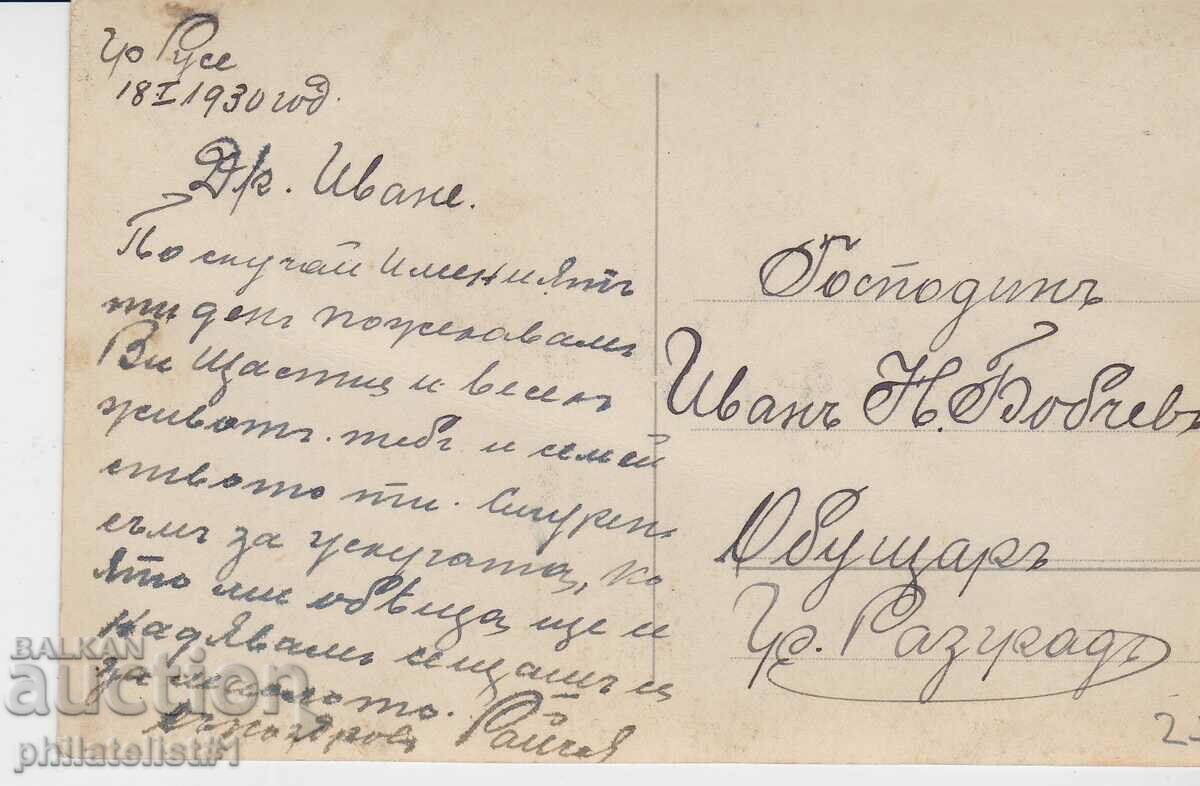 гр Русе
18 I 1930 год.
Др. Иване.
По случай Имен иятъ
ти денъ пожелавамъ
Ви Щастие и веселъ
животъ. тебъ и семей
ството ти. Сигуренъ
съмъ за услугата, ко
ято ми обѣща, ще и
надявамъ се
за
съ поздравъ Райчев
Господинъ
Иванъ Н. Бобчевъ
Обущаръ
Гр. Разградъ
2
BALKAN
auction
philatelist#1